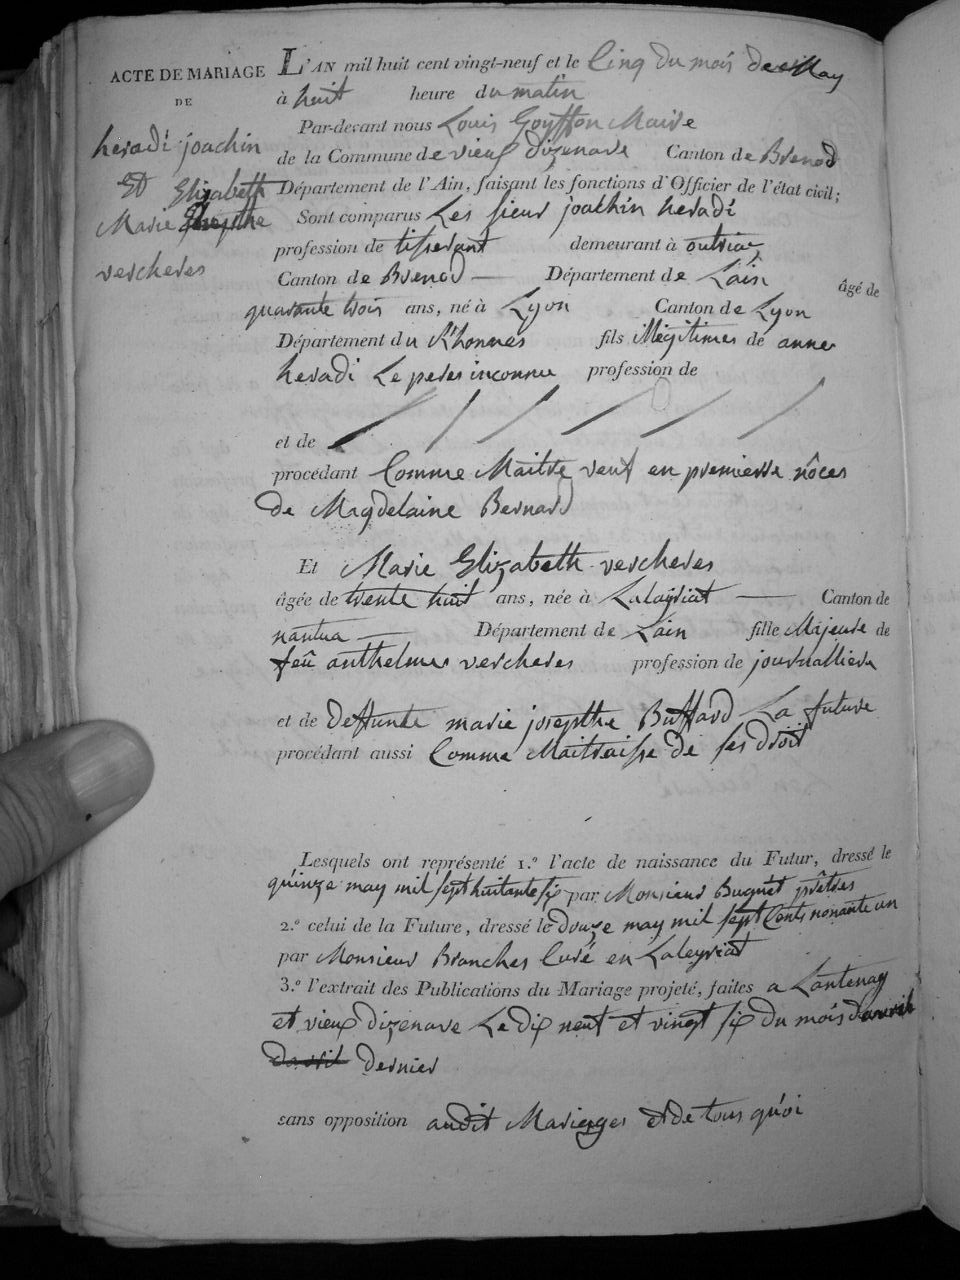 ACTE DE MARIAGE
DE
heradi joachin
Et Elizabeth
Marie
vercheres
L'AN mil huit cent vingt-neuf et le Cinq du mois de May
à huit heure du matin
Par-devant nous Louis Goyffon Maire
de la Commune de vieux dizenave Canton de Brenod
Département de l'Ain, faisant les fonctions d'Officier de l'état civil;
Sont comparus Les sieur joachin heradi
profession de tisserant demeurant à outriaz
Canton de Brenod Département de L'ain âgé de
quarante trois ans, né à Lyon Canton de Lyon
Département du Rhonnes fils illégitimes de anne
heradi Le peres inconnu profession de
et de
procédant Comme Maitre veuf en premierre nôces
de Magdelaine Bernard
Et Marie Elizabeth vercheres
âgée de trente huit ans, née à Laleyriat Canton de
nantua Département de L'ain fille Majeure de
feû anthelmes vercheres profession de journalliere
et de deffunte marie josepthe Buffard La future
procédant aussi Comme Maitraisse de ses droit
Lesquels ont représenté 1.º l'acte de naissance du Futur, dressé le
quinze may mil sept huitante six par Monsieur Buguet prêtres
2.º celui de la Future, dressé le douze may mil sept Cents nonante un
par Monsieur Branches Curé en Laleyriat
3.º l'extrait des Publications du Mariage projeté, faites a Lantenay
et vieux dizenave Le dix neuf et vingt six du mois d'avril
davril dernier
sans opposition audit Mariages et de tous quoi